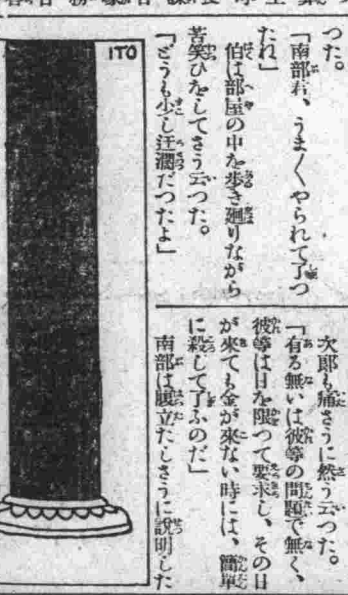 つた。
「南部君、うまく／＼やられて了つ
たね」
伯は部屋の中を歩き廻りながら
苦笑ひをしてさう云つた。
「どうも少し迂濶だつたよ」
次郎も痛さうに然う云つた。
「有る無いは彼等の問題で無く、
彼等は日を限つて要求し、その日
が來ても金が來ない時には、簡單
に殺して了ふのだ」
南部は腹立たしさうに說明した
ITO